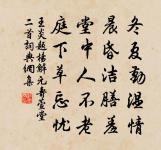 冬夏勤温情
晨昏洁膳羞
堂中人不老
庭下草忘忧
王炎题杨解元寿萱堂
二首词典网集